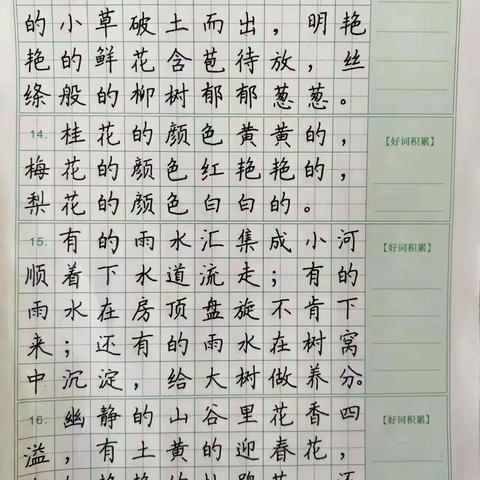 的小草破土而出，明艳
艳的鲜花含苞待放，丝
绦般的柳树郁郁葱葱。
14. 桂花的颜色黄黄的，
【好词积累】
梅花的颜色红艳艳的，
梨花的颜色白白的。
15. 有的雨水汇集成小河
【好词积累】
顺着下水道流走；有的
雨水在房顶盘旋不肯下
来；还有的雨水在树窝
中沉淀，给大树做养分。
16. 幽静的山谷里花香四
【好词积累】
溢，有土黄的迎春花，